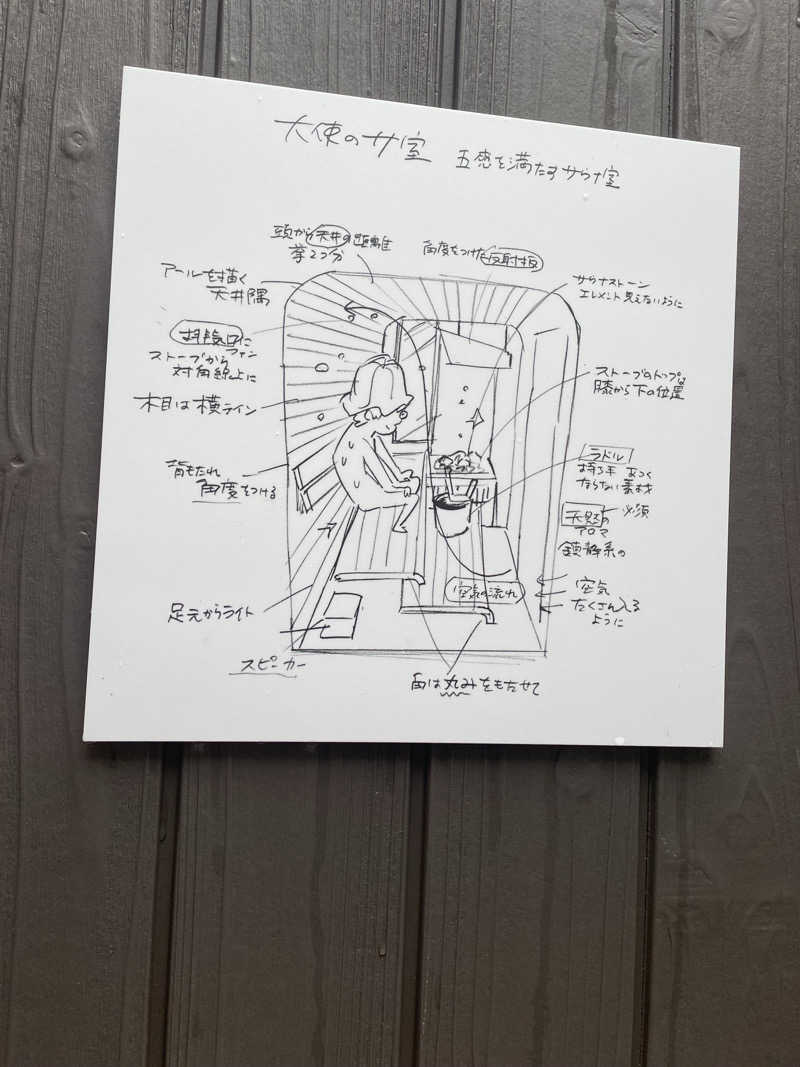 大使のサ室
五感を満たすサウナ室
頭から天井の距離
拳2つ分
角度をつけた反射板
アールを描く
天井隅
サウナストーン
エレメント見えないように
排気口に
ファン
ストーブから
対角線上に
ストーブのトップは
膝から下の位置
木目は横ライン
ラドル
持つ手 あつく
ならない素材
背もたれ
角度をつける
天然の 必須
アロマ
鎮静系の
空気の流れ
空気
たくさん入る
ように
足元からライト
スピーカー
角は丸みをもたせて